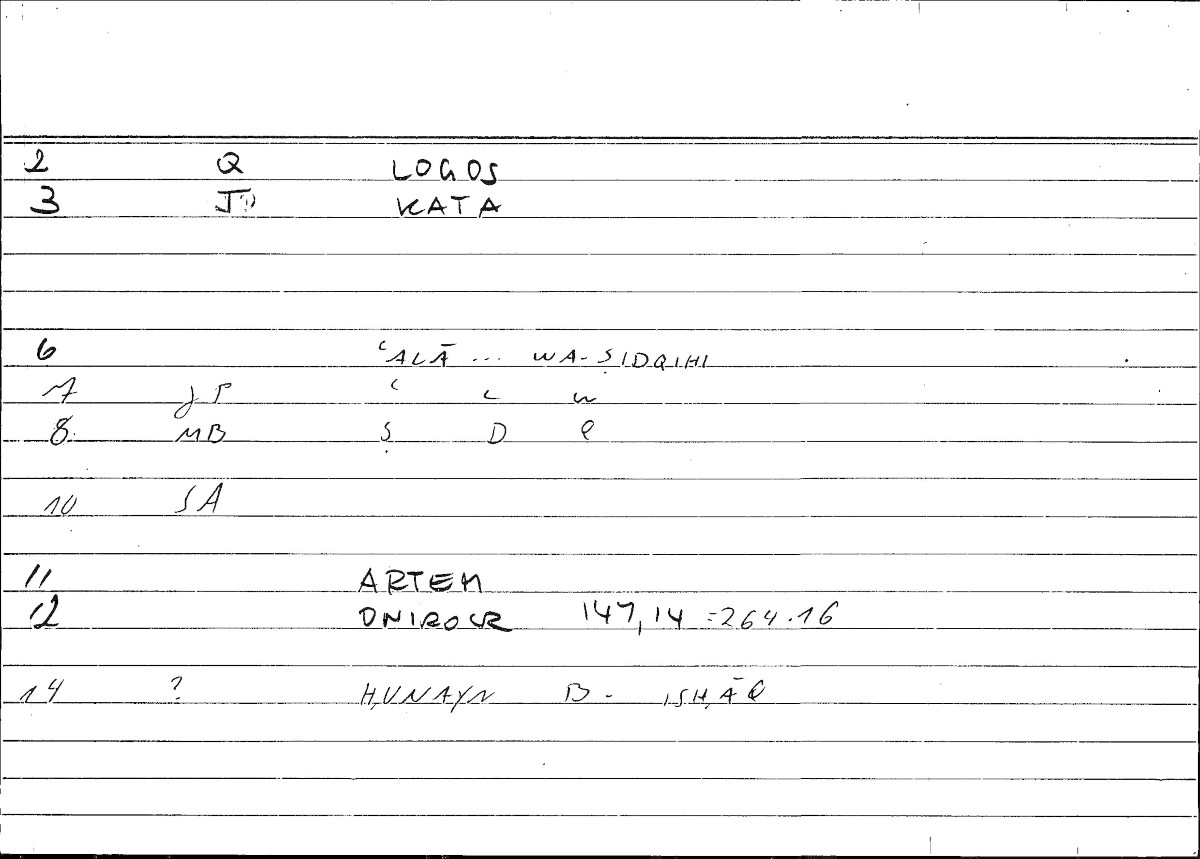 2 Q LOGOS
3 KATA
6 ʿALĀ ... WA-ṢIDQIHI
7 JP ʿ L W
8 MB Ṣ D Q
10 SA
11 ARTEM
12 ONIROCR 147,14 =264.16
14 ? ḤUNAYN B- ISḤĀQ